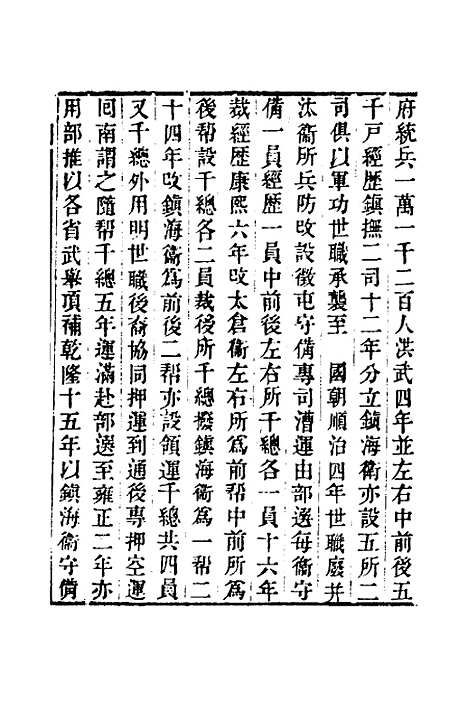 府統兵一萬一千二百人洪武四年並左右中前後五
千戸經歷鎮撫二司十二年分立鎮海衞亦設五所二
司俱以軍功世職承襲至　國朝順治四年世職廢并
汰衞所兵防改設徵屯守備專司漕運由部選每衞守
備一員經歷一員中前後左右所千總各一員十六年
裁經歷康熙六年改太倉衞左右所爲前帮中前所爲
後帮設千總各二員裁後所千總撥鎮海衞爲一帮二
十四年改鎮海衞爲前後二帮亦設領運千總共四員
又千總外用明世職後裔協同押運到通後專押空運
囘南謂之隨帮千總五年運滿赴部選至雍正二年亦
用部推以各省武舉項補乾隆十五年以鎮海衞守備